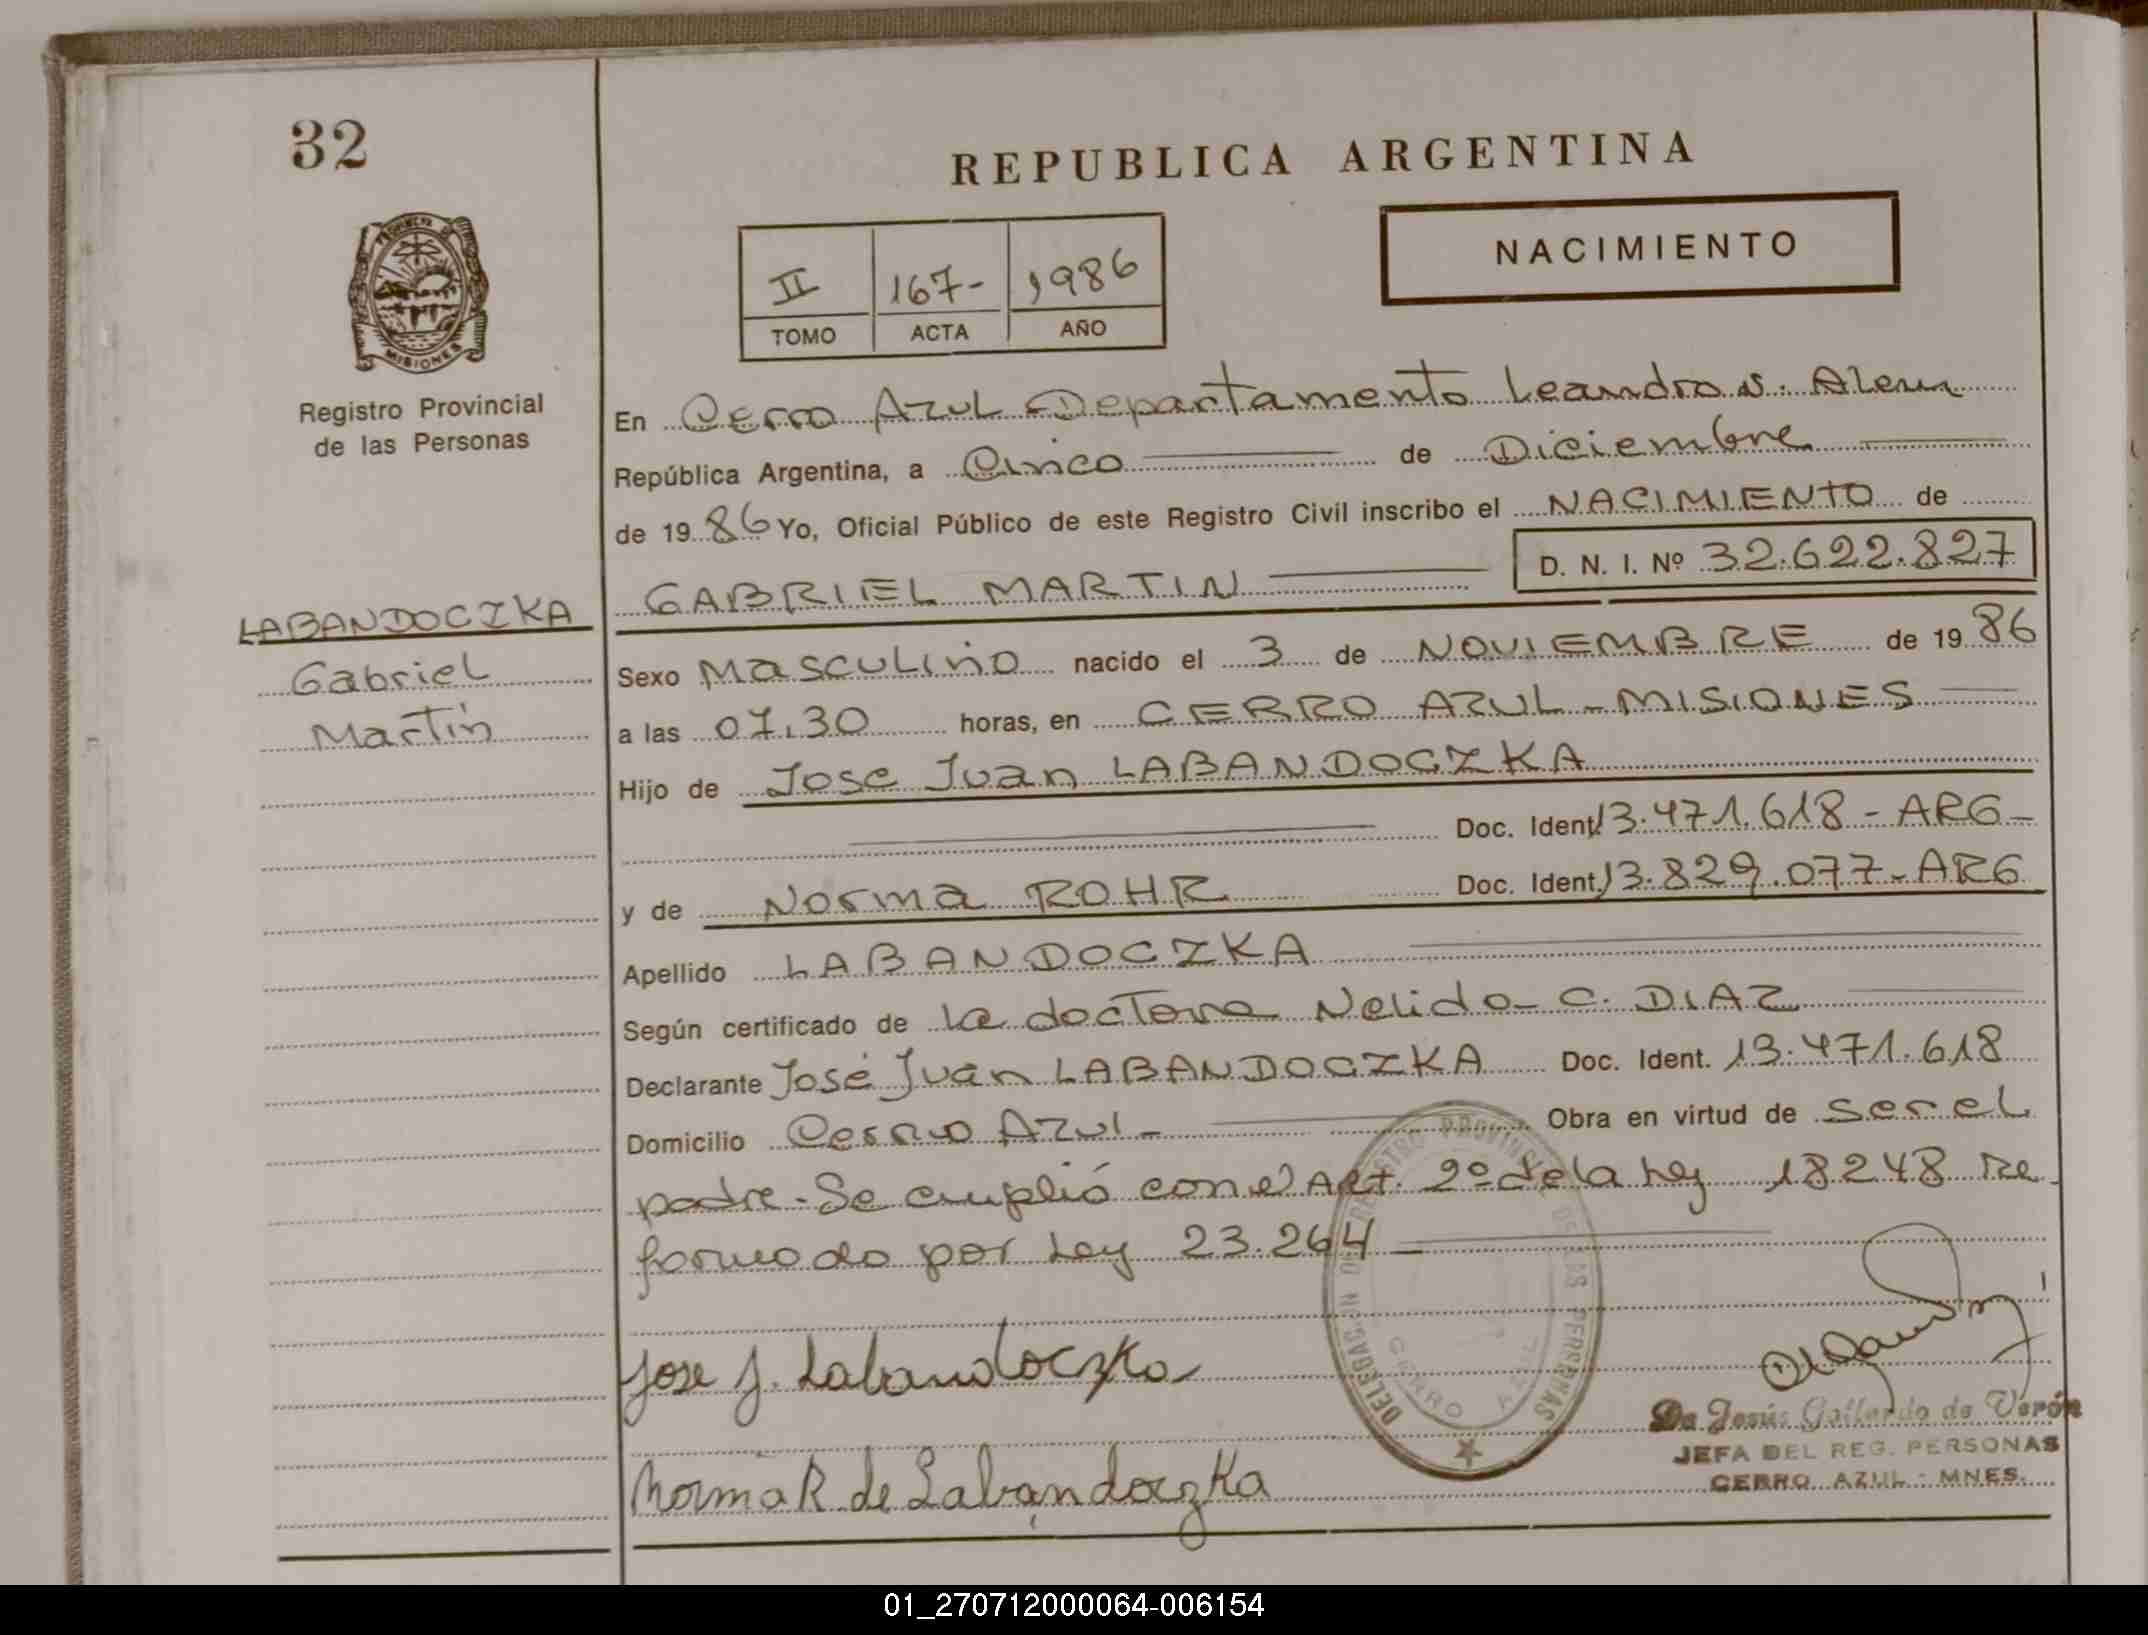 32
REPUBLICA ARGENTINA
NACIMIENTO
II 167- 1986
TOMO ACTA AÑO
PROVINCIA DE
MISIONES
Registro Provincial
de las Personas
LABANDOCZKA
Gabriel
Martín
En Cerro Azul Departamento Leandro N. Alem
República Argentina, a Cinco de Diciembre
de 1986 Yo, Oficial Público de este Registro Civil inscribo el NACIMIENTO de
GABRIEL MARTIN D. N. I. Nº 32.622.827
Sexo Masculino nacido el 3 de NOVIEMBRE de 1986
a las 07.30 horas, en CERRO AZUL - MISIONES
Hijo de Jose Juan LABANDOCZKA
Doc. Ident. 13.471.618 - ARG -
y de Norma ROHR Doc. Ident. 13.829.077 - ARG
Apellido LABANDOCZKA
Según certificado de la doctora Nelida C. DIAZ
Declarante José Juan LABANDOCZKA Doc. Ident. 13.471.618
Domicilio Cerro Azul - Obra en virtud de ser el
padre - Se cumplió con el Art. 2º de la Ley 18248 Re
formado por Ley 23.264 -
Jose J. Labandoczka
Norma R de Labandoczka
DELEGACION DEL REGISTRO PROVINCIAL DE LAS PERSONAS
CERRO AZUL
De Jesús Gallardo de Verón
JEFA DEL REG. PERSONAS
CERRO AZUL - MNES.
01_270712000064-006154